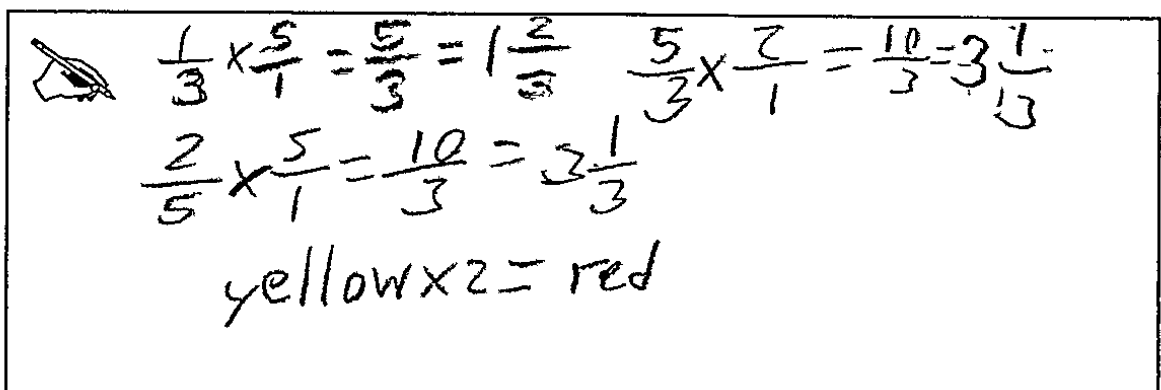 1/3 x 5/1 = 5/3 = 1 2/3 5/3 x 2/1 = 10/3 = 3 1/3
2/5 x 5/1 = 10/3 = 3 1/3
yellow x 2 = red